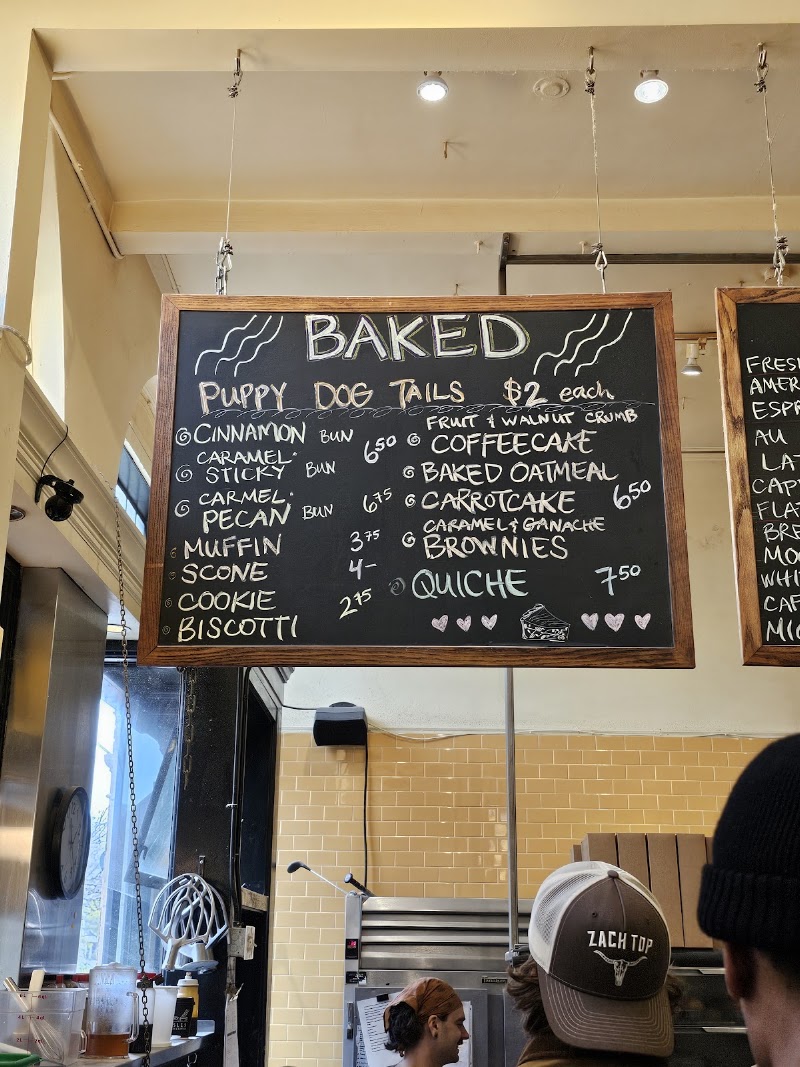 BAKED
PUPPY DOG TAILS $2 each
CINNAMON BUN
CARAMEL
STICKY BUN 650
CARMEL
PECAN BUN 675
MUFFIN 375
SCONE 4-
COOKIE
BISCOTTI 275
FRUIT & WALNUT CRUMB
COFFEECAKE
BAKED OATMEAL
CARROTCAKE 650
CARAMEL & GANACHE
BROWNIES
QUICHE 750
AU
ZACH TOP